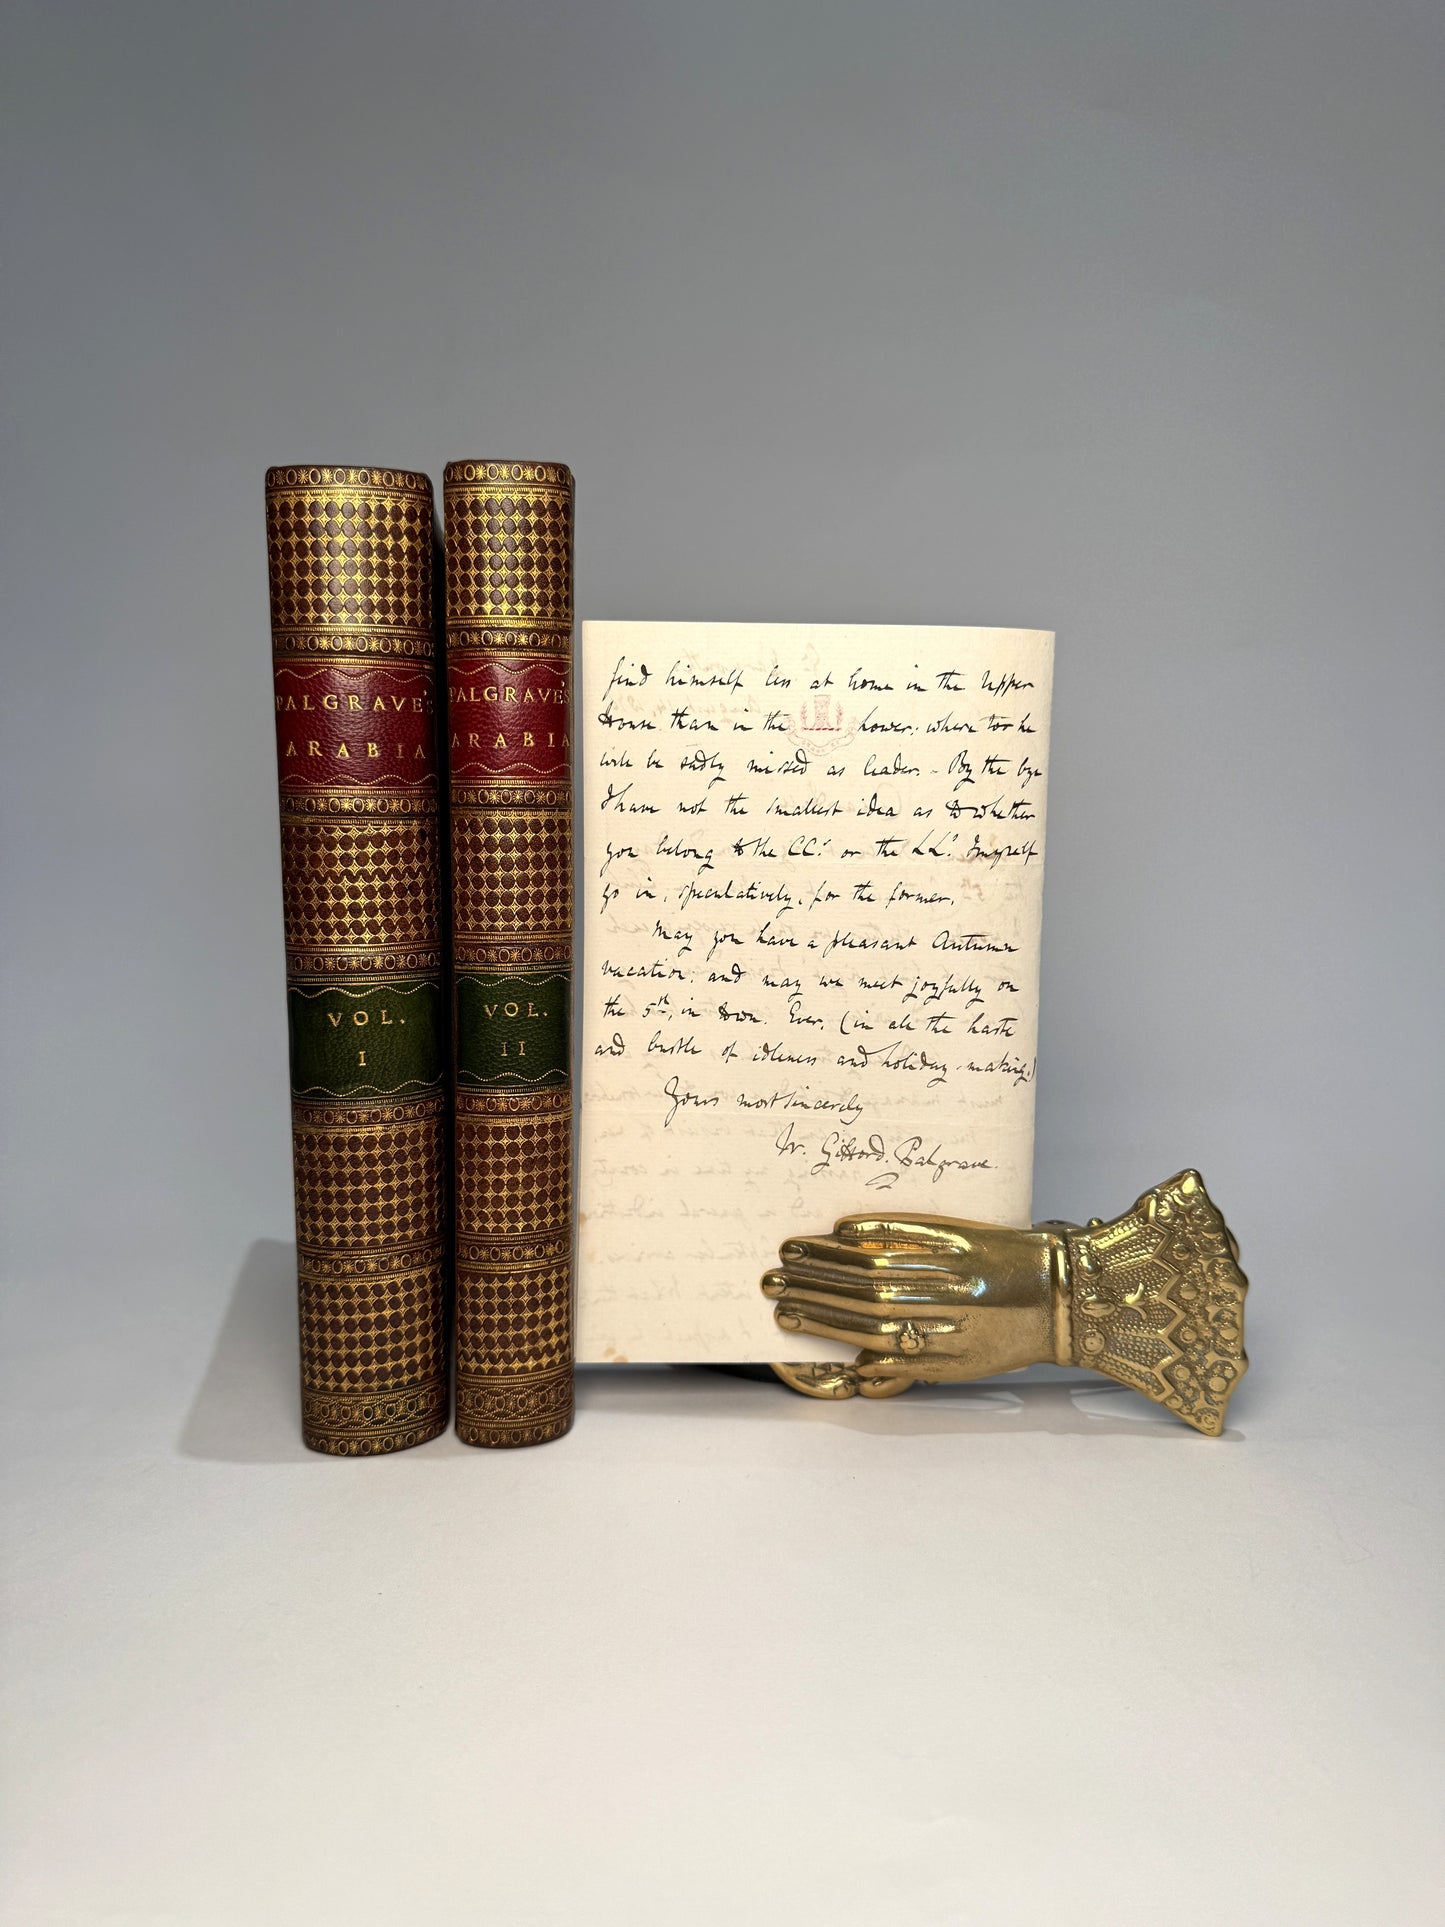 PALGRAVE'S
ARABIA
VOL.
I
PALGRAVE'S
ARABIA
VOL.
II
find himself less at home in the Upper
House than in the Lower; where too he
will be sadly missed as leader. - By the bye
I have not the smallest idea as to whether
you belong to the CC.s or the LL.s I myself
go in, speculatively, for the former.
May you have a pleasant Autumn
vacation; and may we meet joyfully on
the 5th, in town. Ever, (in all the haste
and bustle of idleness and holiday-making,)
Yours most sincerely
W. Gifford Palgrave.